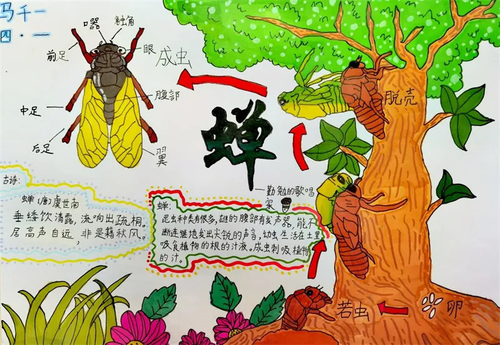 马千一
四·一
口器
触角
眼
前足
成虫
腹部
中足
后足
翼
蝉
勤勉的歌唱
家
脱壳
古诗:
蝉(唐)虞世南
垂緌饮清露,流响出疏桐。
居高声自远,非是藉秋风。
蝉:
昆虫种类有很多,雄的腹部有发声器,能不
断连续地发出尖锐的声音,幼虫生活在土里
吸食植物的根的汁液。成虫刺吸植物
的汁。
若虫
卵